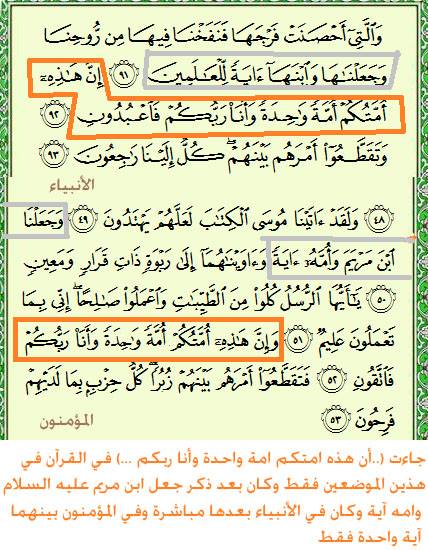 وَالَّتِيٓ أَحْصَنَتْ فَرْجَهَا فَنَفَخْنَا فِيهَا مِن رُّوحِنَا
وَجَعَلْنَٰهَا وَٱبْنَهَآ ءَايَةً لِّلْعَٰلَمِينَ ٩١ إِنَّ هَٰذِهِۦٓ
أُمَّتُكُمْ أُمَّةً وَٰحِدَةً وَأَنَا۠ رَبُّكُمْ فَٱعْبُدُونِ ٩٢
وَتَقَطَّعُوٓا۟ أَمْرَهُم بَيْنَهُمْ ۖ كُلٌّ إِلَيْنَا رَٰجِعُونَ ٩٣
الأنبياء
٤٨ وَلَقَدْ ءَاتَيْنَا مُوسَى ٱلْكِتَٰبَ لَعَلَّهُمْ يَهْتَدُونَ ٤٩ وَجَعَلْنَا
ٱبْنَ مَرْيَمَ وَأُمَّهُۥٓ ءَايَةً وَءَاوَيْنَٰهُمَآ إِلَىٰ رَبْوَةٍ ذَاتِ قَرَارٍ وَمَعِينٍ
٥٠ يَٰٓأَيُّهَا ٱلرُّسُلُ كُلُوا۟ مِنَ ٱلطَّيِّبَٰتِ وَٱعْمَلُوا۟ صَٰلِحًا ۖ إِنِّى بِمَا
تَعْمَلُونَ عَلِيمٌ ٥١ وَإِنَّ هَٰذِهِۦٓ أُمَّتُكُمْ أُمَّةً وَٰحِدَةً وَأَنَا۠ رَبُّكُمْ
فَٱتَّقُونِ ٥٢ فَتَقَطَّعُوٓا۟ أَمْرَهُم بَيْنَهُمْ زُبُرًا ۖ كُلُّ حِزْبٍۭ بِمَا لَدَيْهِمْ
فَرِحُونَ ٥٣
المؤمنون
جاءت (..أن هذه امتكم امة واحدة وأنا ربكم ...) في القرآن في
هذين الموضعين فقط وكان بعد ذكر جعل ابن مريم عليه السلام
وامه آية وكان في الأنبياء بعدها مباشرة وفي المؤمنون بينهما
آية واحدة فقط